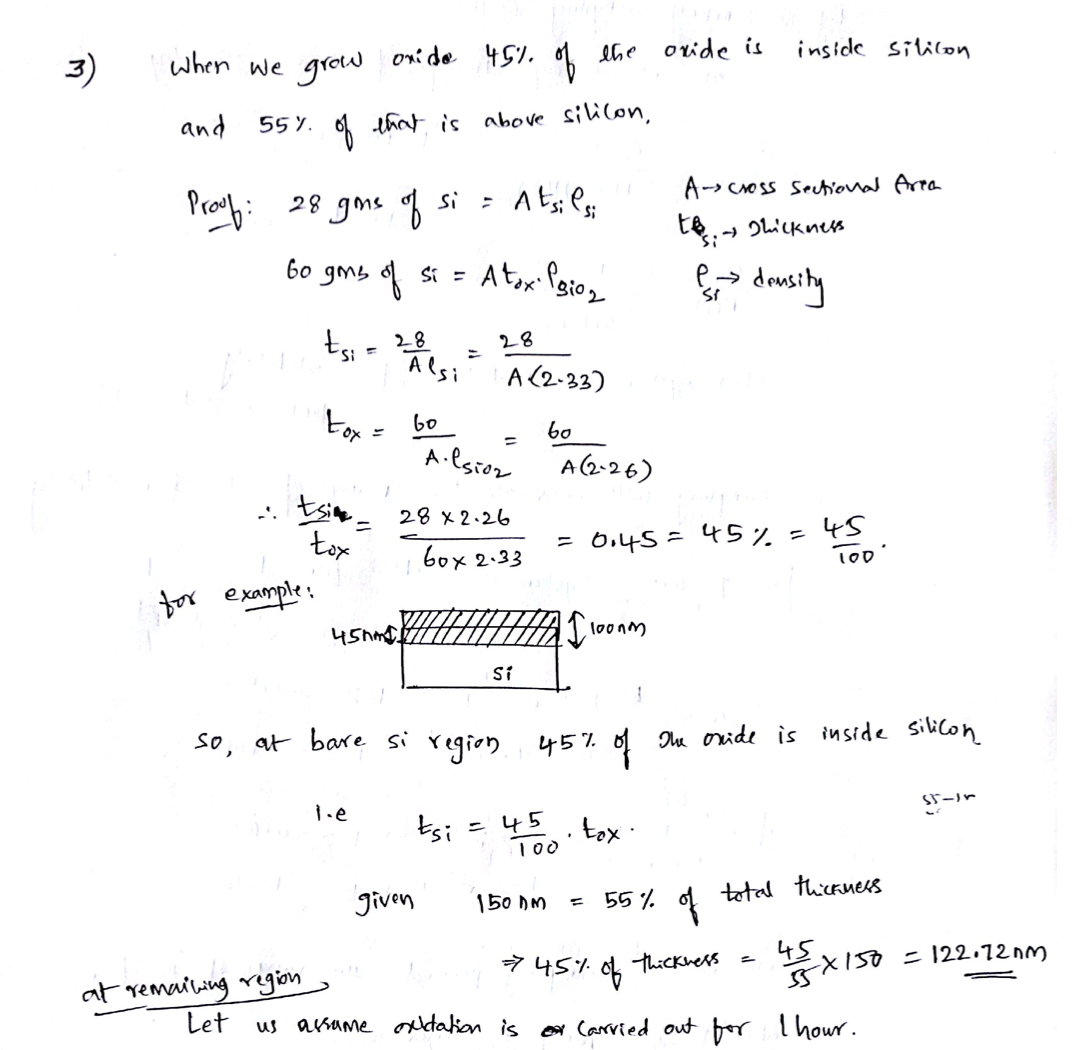 3) When we grow oxide 45% of the oxide is inside silicon
and 55% of that is above silicon.
Proof: 28 gms of si = A tsi ρsi
A → cross sectional Area
tsi → thickness
60 gms of si = A tox. ρsio2
ρsi → density
tsi = 28 / Aρsi = 28 / A(2.33)
tox = 60 / A.ρsio2 = 60 / A(2.26)
∴ tsi / tox = 28 x 2.26 / 60 x 2.33 = 0.45 = 45% = 45 / 100.
for example:
45nm
100nm
si
so, at bare si region 45% of the oxide is inside silicon
i.e tsi = 45 / 100 . tox.
given 150nm = 55% of total thickness
⇒ 45% of thickness = 45 / 55 x 150 = 122.72nm
at remaining region,
Let us assume oxidation is carried out for 1 hour.